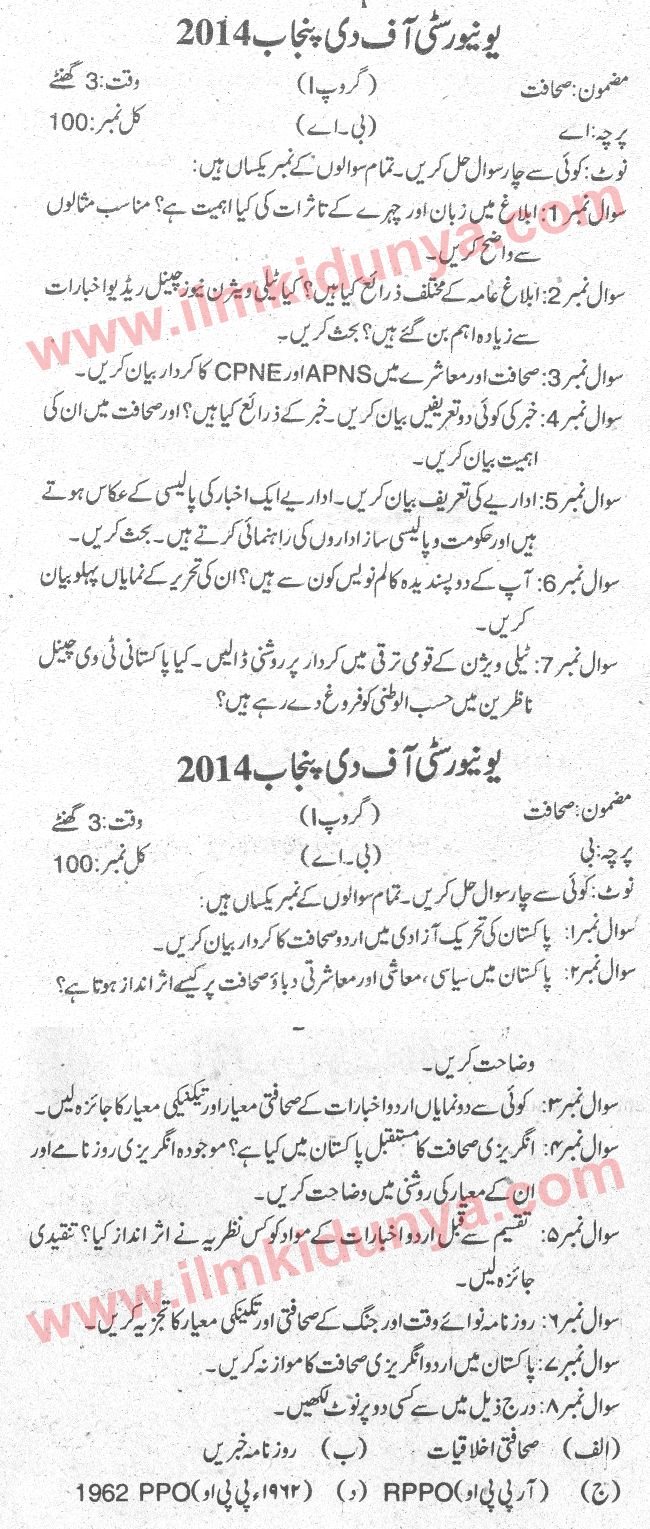 یونیورسٹی آف دی پنجاب 2014
مضمون: صحافت (گروپ I) وقت: 3 گھنٹے
پرچہ: اے (بی۔اے) کل نمبر: 100
نوٹ: کوئی سے چار سوال حل کریں۔ تمام سوالوں کے نمبر یکساں ہیں:
سوال نمبر 1: ابلاغ میں زبان اور چہرے کے تاثرات کی کیا اہمیت ہے؟ مناسب مثالوں
سے واضح کریں۔
سوال نمبر 2: ابلاغ عامہ کے مختلف ذرائع کیا ہیں؟ کیا ٹیلی ویژن نیوز چینل ریڈیو اخبارات
سے زیادہ اہم بن گئے ہیں؟ بحث کریں۔
سوال نمبر 3: صحافت اور معاشرے میں APNS اور CPNE کا کردار بیان کریں۔
سوال نمبر 4: خبر کی کوئی دو تعریفیں بیان کریں۔ خبر کے ذرائع کیا ہیں؟ اور صحافت میں ان کی
اہمیت بیان کریں۔
سوال نمبر 5: اداریے کی تعریف بیان کریں۔ اداریے ایک اخبار کی پالیسی کے عکاس ہوتے
ہیں اور حکومت و پالیسی ساز اداروں کی راہنمائی کرتے ہیں۔ بحث کریں۔
سوال نمبر 6: آپ کے دو پسندیدہ کالم نویس کون سے ہیں؟ ان کی تحریر کے نمایاں پہلو بیان
کریں۔
سوال نمبر 7: ٹیلی ویژن کے قومی ترقی میں کردار پر روشنی ڈالیں۔ کیا پاکستانی ٹی وی چینل
ناظرین میں حب الوطنی کو فروغ دے رہے ہیں؟
یونیورسٹی آف دی پنجاب 2014
مضمون: صحافت (گروپ I) وقت: 3 گھنٹے
پرچہ: بی (بی۔اے) کل نمبر: 100
نوٹ: کوئی سے چار سوال حل کریں۔ تمام سوالوں کے نمبر یکساں ہیں:
سوال نمبر ۱: پاکستان کی تحریک آزادی میں اردو صحافت کا کردار بیان کریں۔
سوال نمبر ۲: پاکستان میں سیاسی، معاشی اور معاشرتی دباؤ صحافت پر کیسے اثر انداز ہوتا ہے؟
وضاحت کریں۔
سوال نمبر ۳: کوئی سے دو نمایاں اردو اخبارات کے صحافتی معیار اور تیکنیکی معیار کا جائزہ لیں۔
سوال نمبر ۴: انگریزی صحافت کا مستقبل پاکستان میں کیا ہے؟ موجودہ انگریزی روزنامے اور
ان کے معیار کی روشنی میں وضاحت کریں۔
سوال نمبر ۵: تقسیم سے قبل اردو اخبارات کے مواد کو کس نظریہ نے اثر انداز کیا؟ تنقیدی
جائزہ لیں۔
سوال نمبر ۶: روزنامہ نوائے وقت اور جنگ کے صحافتی اور تکنیکی معیار کا تجزیہ کریں۔
سوال نمبر ۷: پاکستان میں اردو انگریزی صحافت کا موازنہ کریں۔
سوال نمبر ۸: درج ذیل میں سے کسی دو پر نوٹ لکھیں۔
(الف) صحافتی اخلاقیات (ب) روزنامہ خبریں
(ج) (آر پی پی او) RPPO (د) (۱۹۶۲ء پی پی او) 1962 PPO
www.ilmkidunya.com
www.ilmkidunya.com